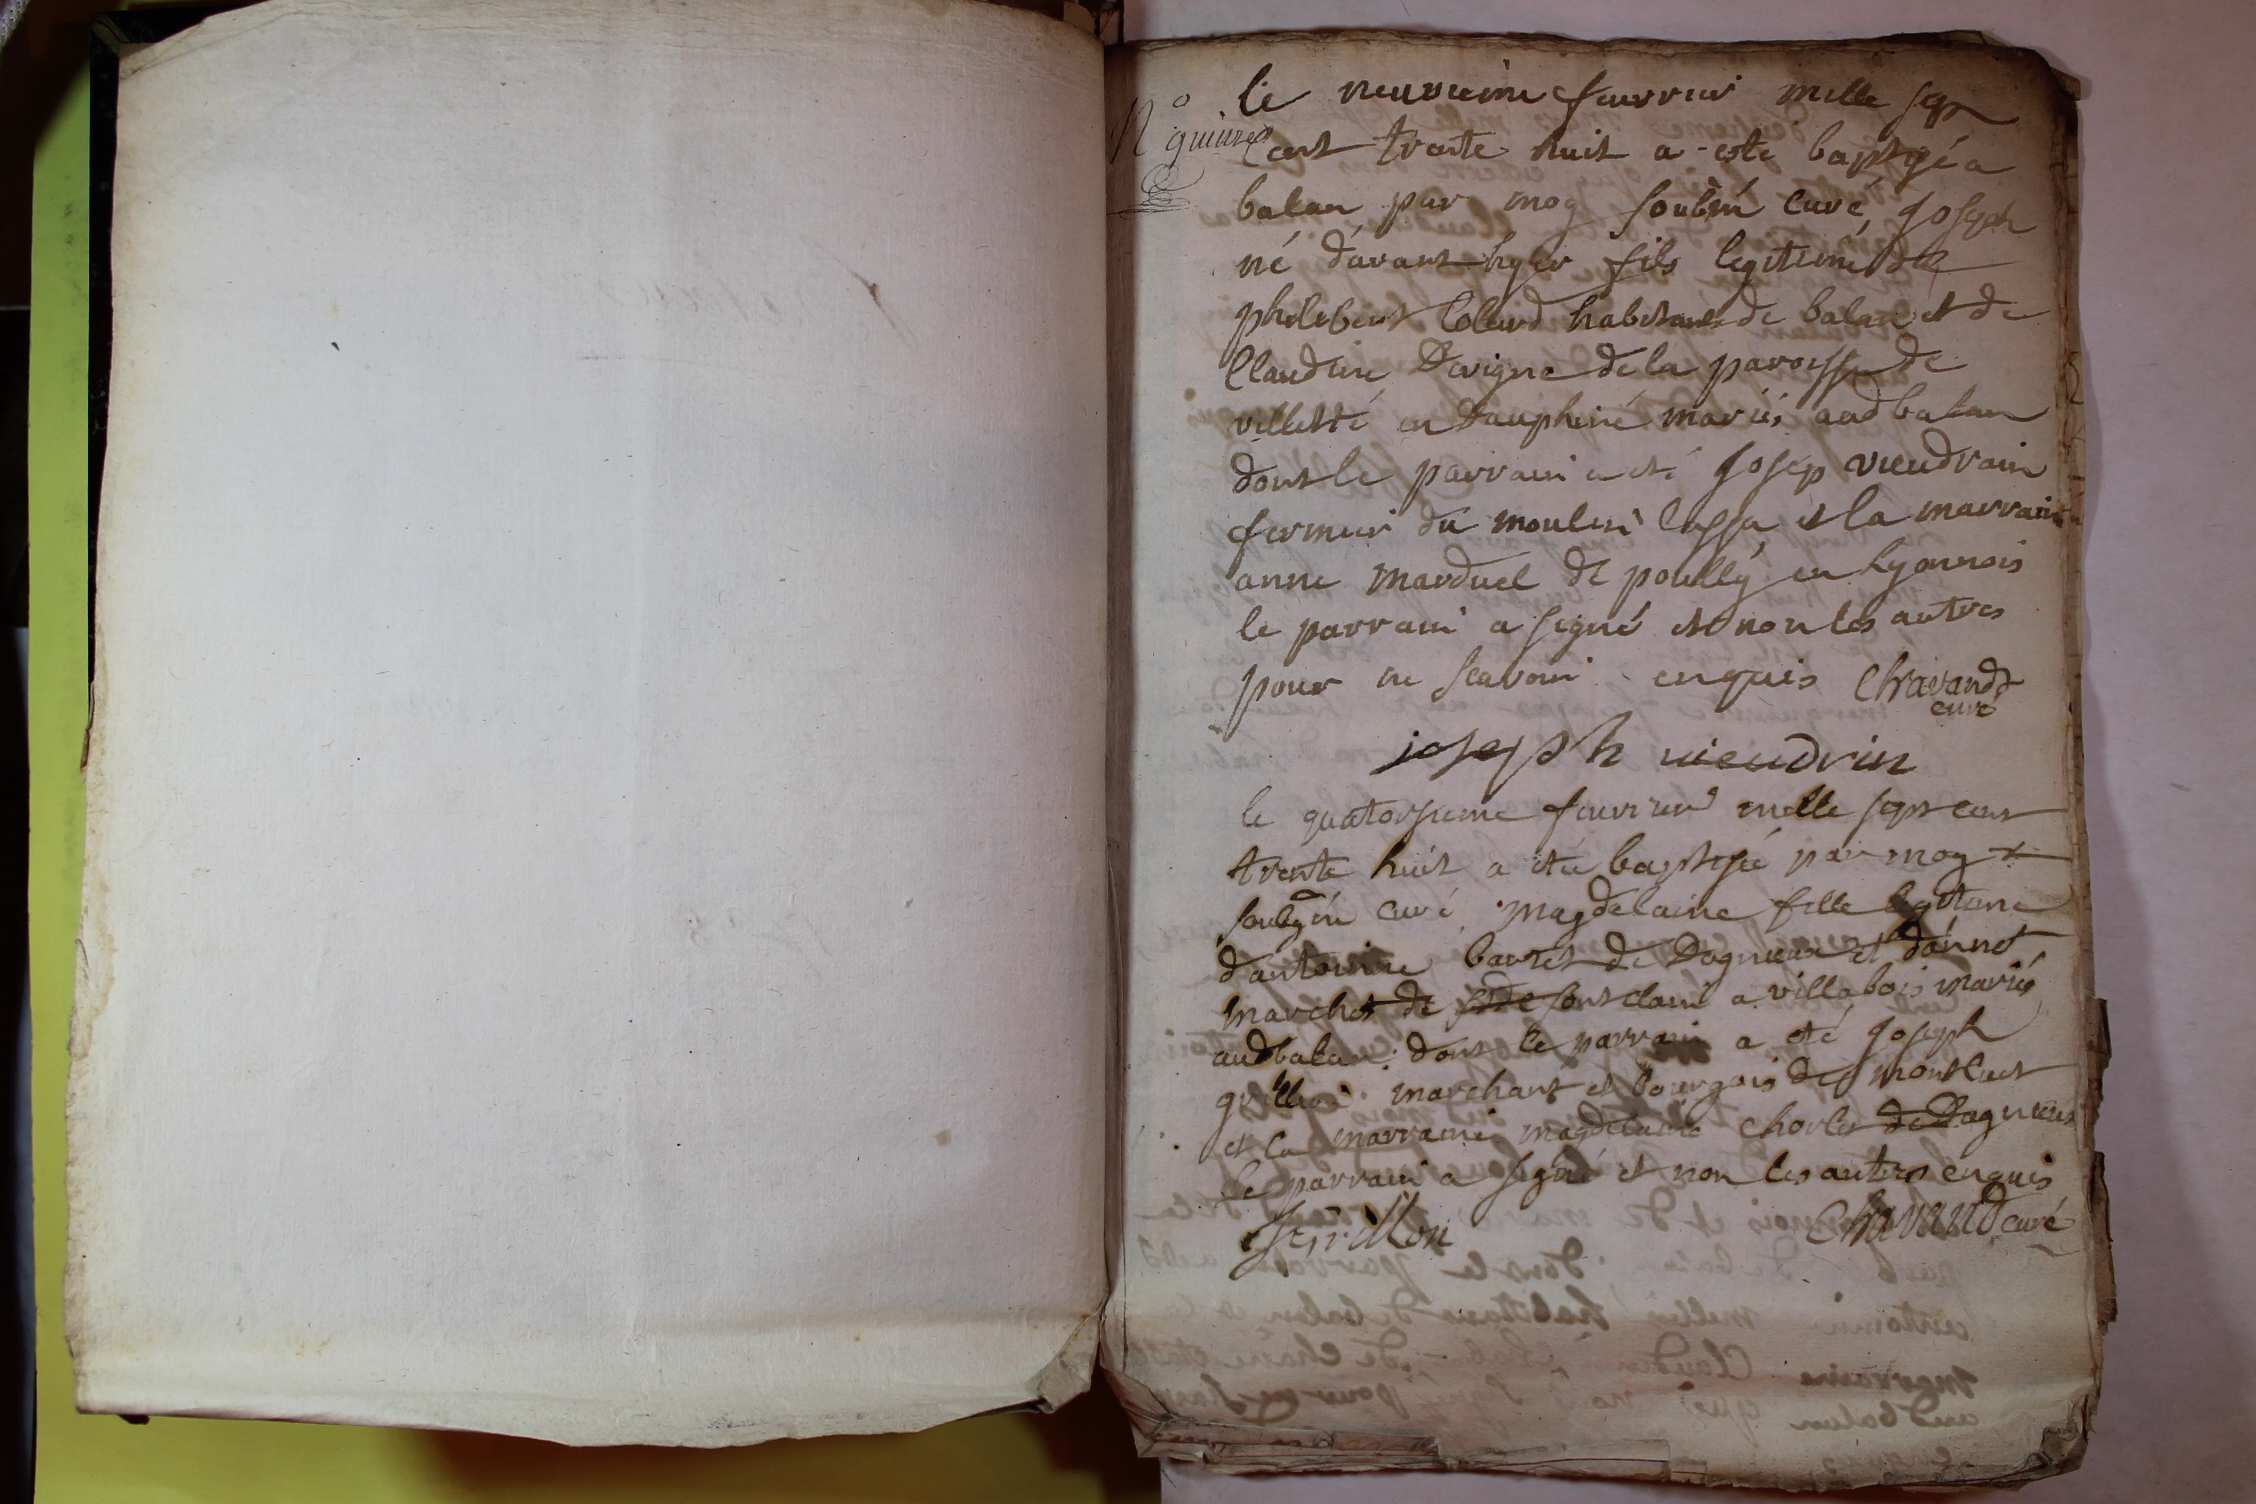 N° quinze
le neuvieme fevrier mille sept
cent trente huit a esté baptisé a
balan par moy soubné curé, Joseph
né d'avant hyer fils legitime de
philebert Colard habitant de balan et de
Claudine Devigne de la paroisse de
villette en Dauphiné mariés aud balan
dont le parrain a eté Josep vieudrain
fermier du moulin Cassa et la marraine
anne marduel de poully en Lyonnois
le parrain a signé et non les autres
pour ne scavoir enquis Chavand
curé
joseph vieudrin
le quatorsieme fevrier mille sept cent
trente huit a eté baptisée par moy
soubné curé Magdelaine fille legitime
d'antoine barret de Dagnieux et d'anne
marchet de fontclair a villabois mariés
aud balan: dont le parrain a eté Joseph
marchant et bourgois de montluet
et la marraine magdelaine de Dagnieux
le parrain a signé et non les autres enquis
Chavand curé